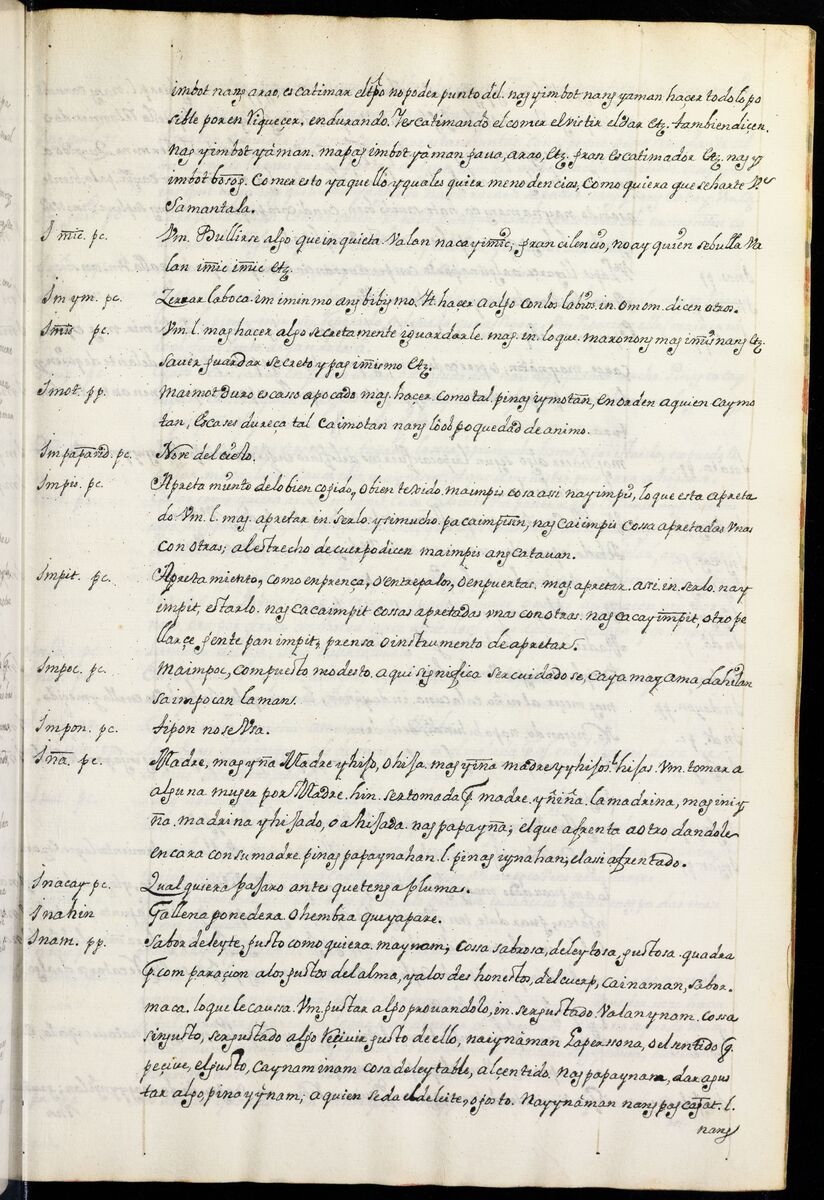 imbot nang arao, es catimar el tpo no poder punto del. nag yimbot nang yaman hacer todo lo po
sible por en Riqueçer, endurando. Y escatimando el comer el vistir el dar etz. tambien dicen.
nag yimbot yàman. mapag imbot yàman gaua, arao, etz. gran escatimador etz. nag y
imbot bosog. Comer esto y aquello y quales quier menodencias, como quiera que se harte
Samantala.
Imic. pc. Vm. Bullirse algo que inquieta. Valan nacayimic; gran cilencio, no ay quien se bulla Va
lan imic imic etz
Im ym. pc. Zerrar la boca. im iminmo ang bibig mo. Vt hacer a algo con los labios. in. omom. dicen otros.
Imis pc. Vm. l. mag hacer algo secretamente i guardarle. mag. in. lo que. maronong mag imis nang etz.
saver guardar secreto y pag imismo etz.
Imot. pp. Maimot Duro escasso apocado mag. hacer como tal. pinag iymotan, en orden a quien caymo
tan, Escases dureça tal caimotan nang loob poquedad de animo.
Impapanid. pc. Nore del cielo.
Impis. pc. Apreta miento de lo bien cogido, o bien texido. maimpis cosa asi nayimpis, lo que esta apreta
do Vm. l. mag. apretar in. serlo. y si mucho. pacaimpisin, nag caiimpis cossa apretadas vnas
con otras; al estrecho de cuerpo dicen maimpis ang catauan.
Impit. pc. Apretamiento, como en prença, o entrepalos, o en puertas. mag apretar. asi. in. serlo. nay
impit, estarlo. nag cacaimpit cossas apretadas vnas con otras. nag cacayimpit, otro pe
llarçe gente pan impit, prensa o instrumento de apretar.
Impoc. pc. Maimpoc, compuesto modesto. aqui significa ser cuidadose, caya may ama, dahilan
saimpocan lamang.
Impon. pc. tipon no se Vsa.
Ina. pc. Madre, mag yna Madre y hijo, o hija. mag yina madre y hijos. l. hijas. Vm. tomar a
alguna muger por Madre. hin. ser tomada p. madre. yniina. la madrina, mag ini y
na. madrina y hijado, o a hijada. nag papayna; el que afrenta a otro dandole
en cara con su madre. pinag papaynahan. l. pinag iynahan; el asi afrentado.
Inacay pc. Qual quiera pajaro antes que tenga plumas.
Inahin Gallena ponedera. o hembra que ya pare.
Inam. pp. Sabor deleyte, gusto como quiera. maynam; cossa sabrosa, deleytosa, gustosa. quadra
p. com paraçion a los gustos del alma, y a los des honestos, del cuerp, cainaman, sabor.
maca. lo que le caussa. Vm gustar algo provandolo, in. ser gustado. Valan ynam. cossa
sin gusto, ser gustado algo Reçivir gusto de ello, naiynàman La perssona, o el sentido q.
peçive, el gusto, caynam inam cosa deleytable, al çentido. nag papaynam, dar a gus
tar algo, pina yynam; a quien se da el deleite, o gosto. Nayynàman nang pag l.
nang